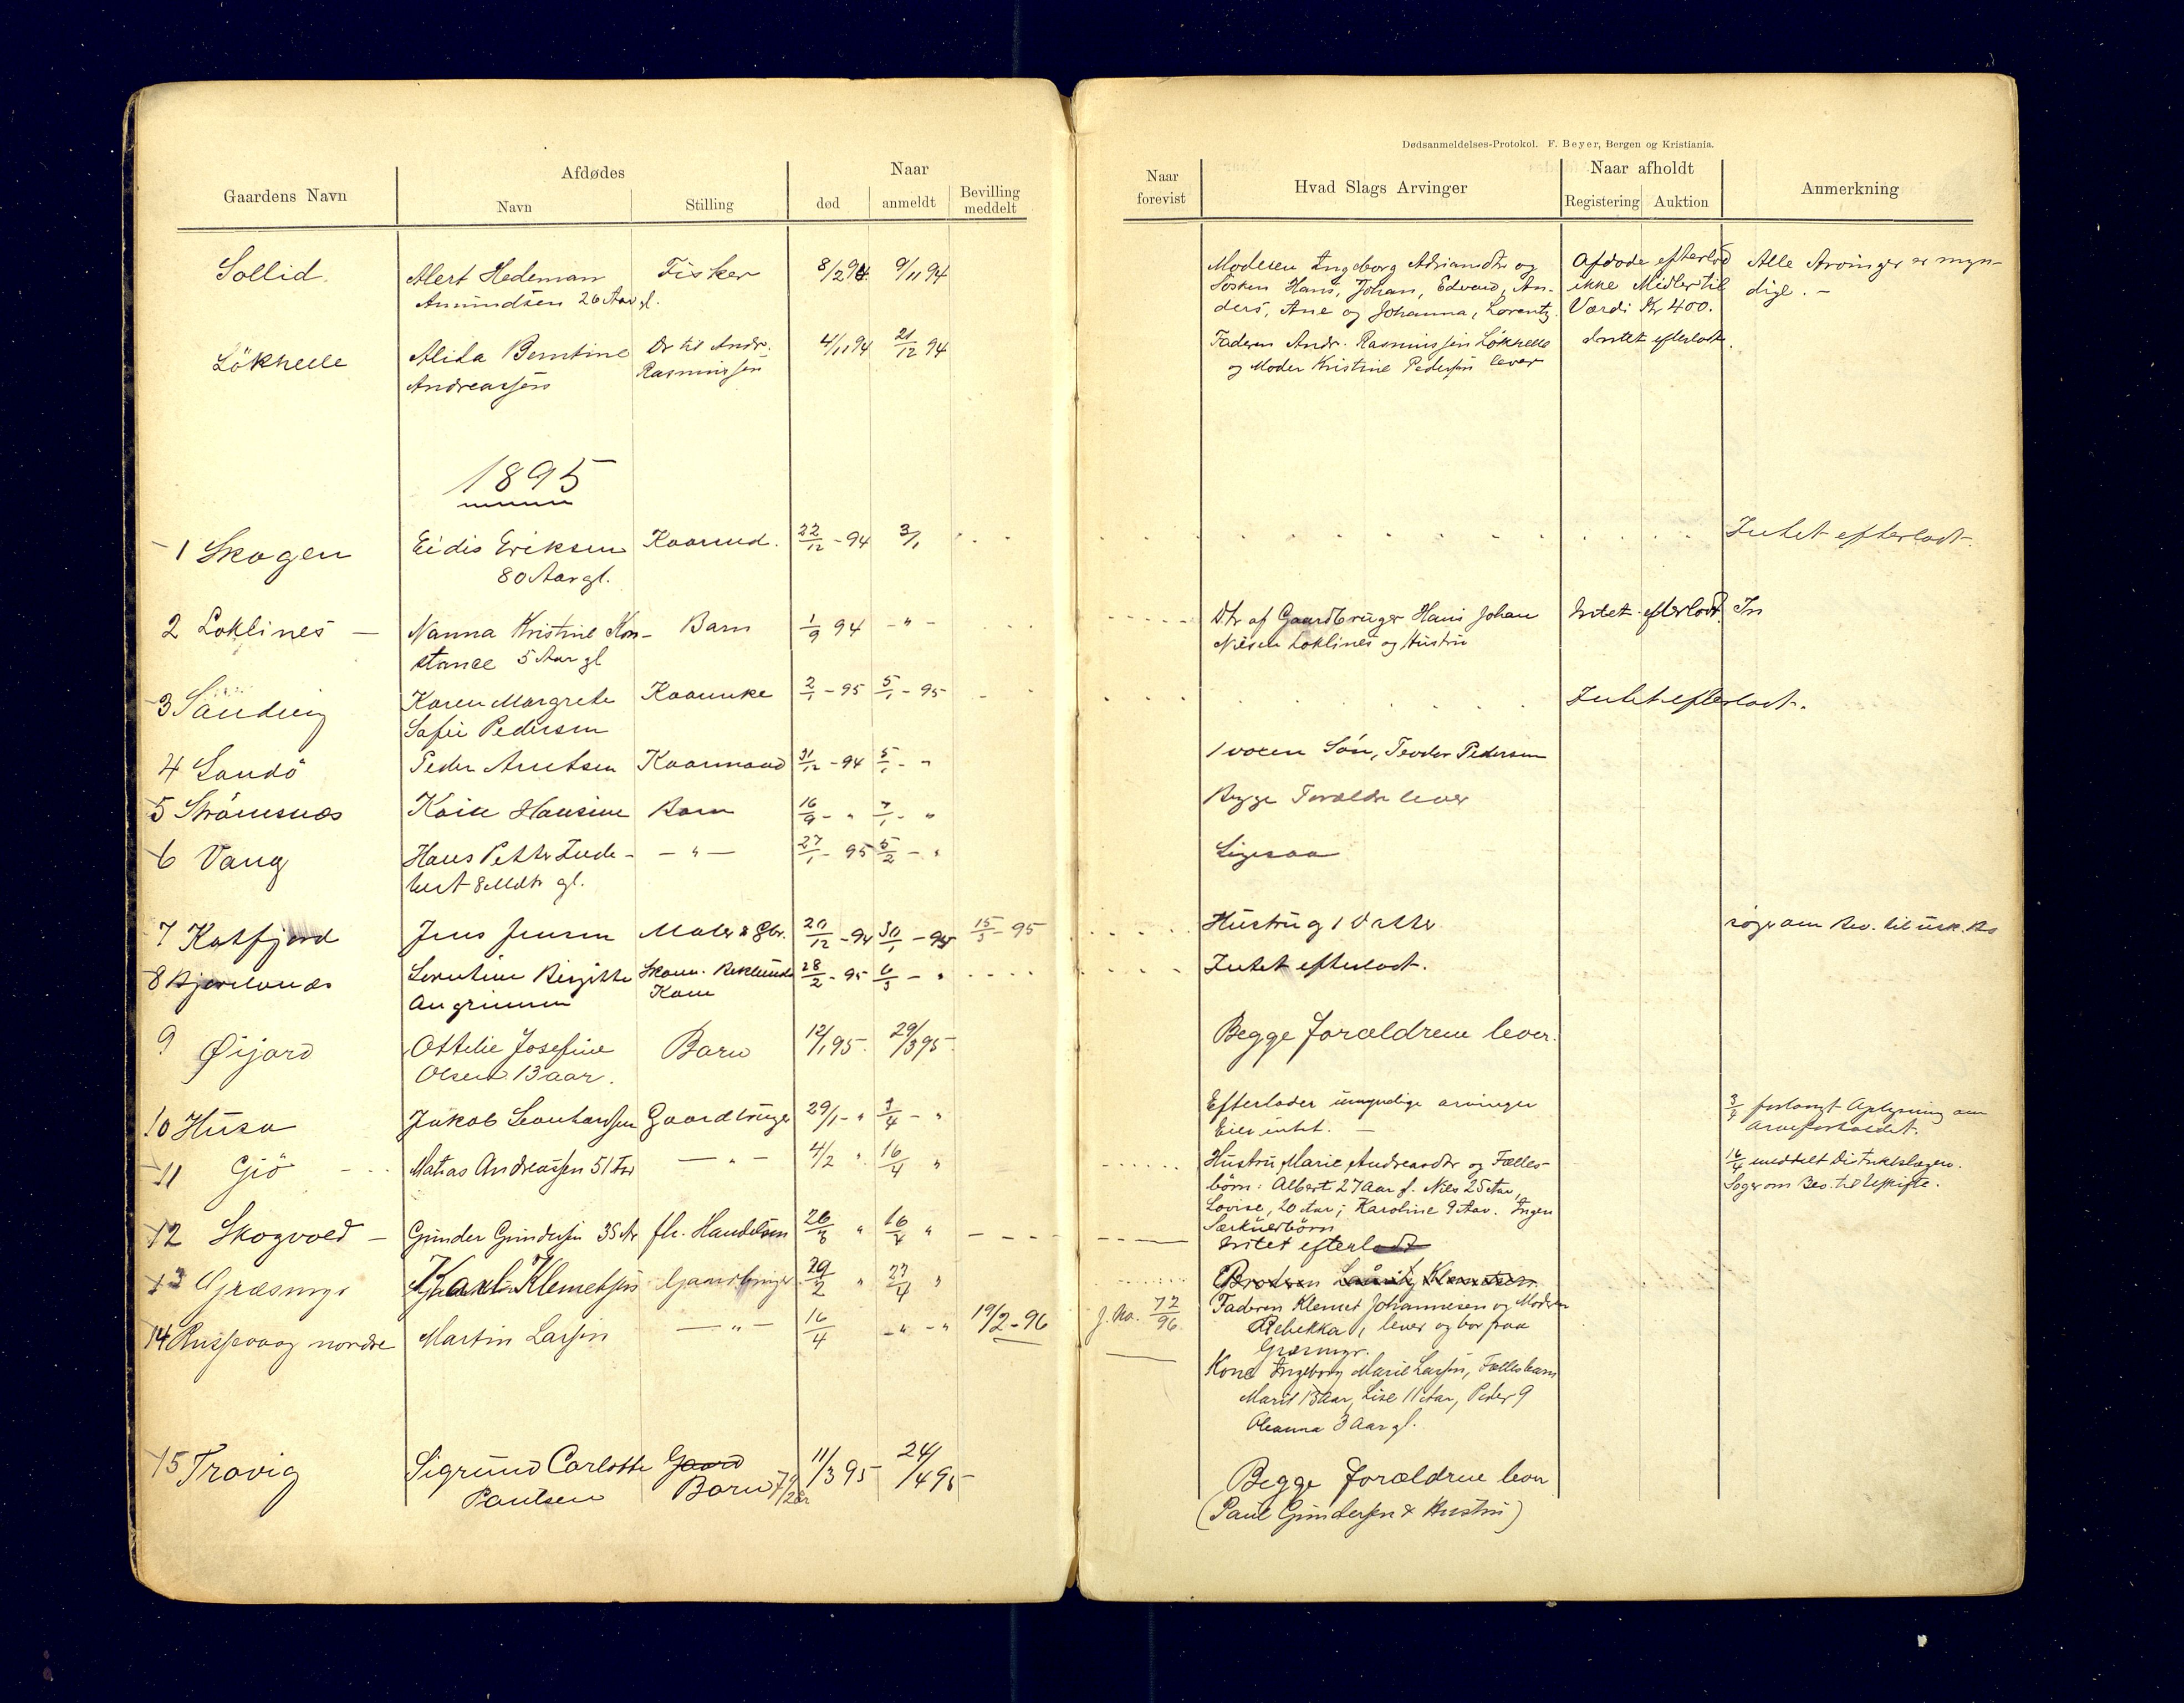 Dødsanmeldelses-Protokol. F. Beyer, Bergen og Kristiania.
Gaardens Navn
Afdødes
Navn
Stilling
Naar
død
anmeldt
Bevilling
meddelt
Naar
forevist
Hvad Slags Arvinger
Naar afholdt
Registering
Auktion
Anmerkning
Sollid
Alert Hedeman
Amundsen 26 Aar gl.
Fisker
8/2 94
9/11 94
Moderen Ingeborg Adriansdtr og
Søsken Hans, Johan, Edvard, An-
ders, Ane og Johanna, Lorentz.
Afdøde efterlod
ikke Midler til
Værdi Kr 400.
Alle Arvinger er myn-
dige. -
Løkhelle
Alida Berntine
Andreassen
Dr til Andr.
Rasmussen
4/11 94
21/12 94
Faderen Andr. Rasmussen Løkhelle
og Moder Kristine Pedersen lever
Intet efterladt.
1895
1 Skogen
Eidis Eriksen
80 Aar gl.
22/12 - 94
3/1
Intet efterladt.
2 Loklines -
Nanna Kristine Kon-
stance 5 Aar gl
Barn
1/9 94
- " -
Dtr af Gaardbruger Hans Johan
Nilsen Loklines og Hustru
Intet efterladt. In
3 Sandvig
Karen Margrete
Sofie Pedersen
2/1 - 95
5/1 - 95
Intet efterladt.
4 Sandø
Peder Arntsen
Kaarmand
31/12 - 94
5/1 - "
1 voxen Søn, Teodor Pedersen
5 Strømsnes
Hansine
Barn
16/9 - "
7/1 - "
Begge Forældre lever
6 Vang
Hans Petter Inde-
bert 8 Mdr gl.
- " -
27/1 - 95
5/2 - "
Ligesaa
7 Katfjord
Jens Jensen
Maler & Gbr.
20/12 - 94
30/1 - 95
15/3 - 95
Hustru og 1 Datter
søger om Bev. til usk. Bo
8
Lorentine Birgitte
Angrimsen
Kone
28/2 - 95
6/3 - "
Intet efterladt.
9 Øijord
Ottilie Josefine
Olsen 13 aar.
Barn
12/1 95.
29/3 95.
Begge forældrene lever.
10 Husa
Jakob Leonhardsen
Gaardbruger
29/1 - "
3/4 - "
Efterlader umyndige arvinger
Eier intet. -
3/4 forlangt Oplysning om
arveforholdet.
11 Gjø
Matias Andreassen 51 Aar
- " -
4/2 "
16/4 "
Hustru Marie Andreasdtr og Fælles-
børn: Albert 27 Aar g. Nils 25 Aar,
Lovise, 20 Aar, Karoline 9 Aar. Ingen
Særkulsbørn
16/4 meddelt Distriktslægen.
Søger om Bev. til Uskifte.
12 Skogvold -
Gunder Gundersen 35 Ar
fh. Handelsm
26/3 "
16/4 "
Intet efterladt
13 Græsmyr
Karl Klemetsen
Gaardbruger
20/2 "
27/4 "
Faderen Klemet Johannesen og Moderen
Rebekka, lever og bor paa
Græsmyr.
14 Russevaag nordre
Martin Larsen
- " -
16/4
- " - "
19/2 - 96
J. No. 72/96
Kone Ingeborg Marie Larsen, Fællesbarn
Marit 13 Aar, Lise 11 Aar, Peder 9
Oleanna 3 Aar gl.
15 Trovig
Sigrund Carlotte
Paulsen
Gaard
Barn 7 1/2 år
11/3 95
24/4 95
Begge forældrene lever
(Paul Gundersen & Hustru)